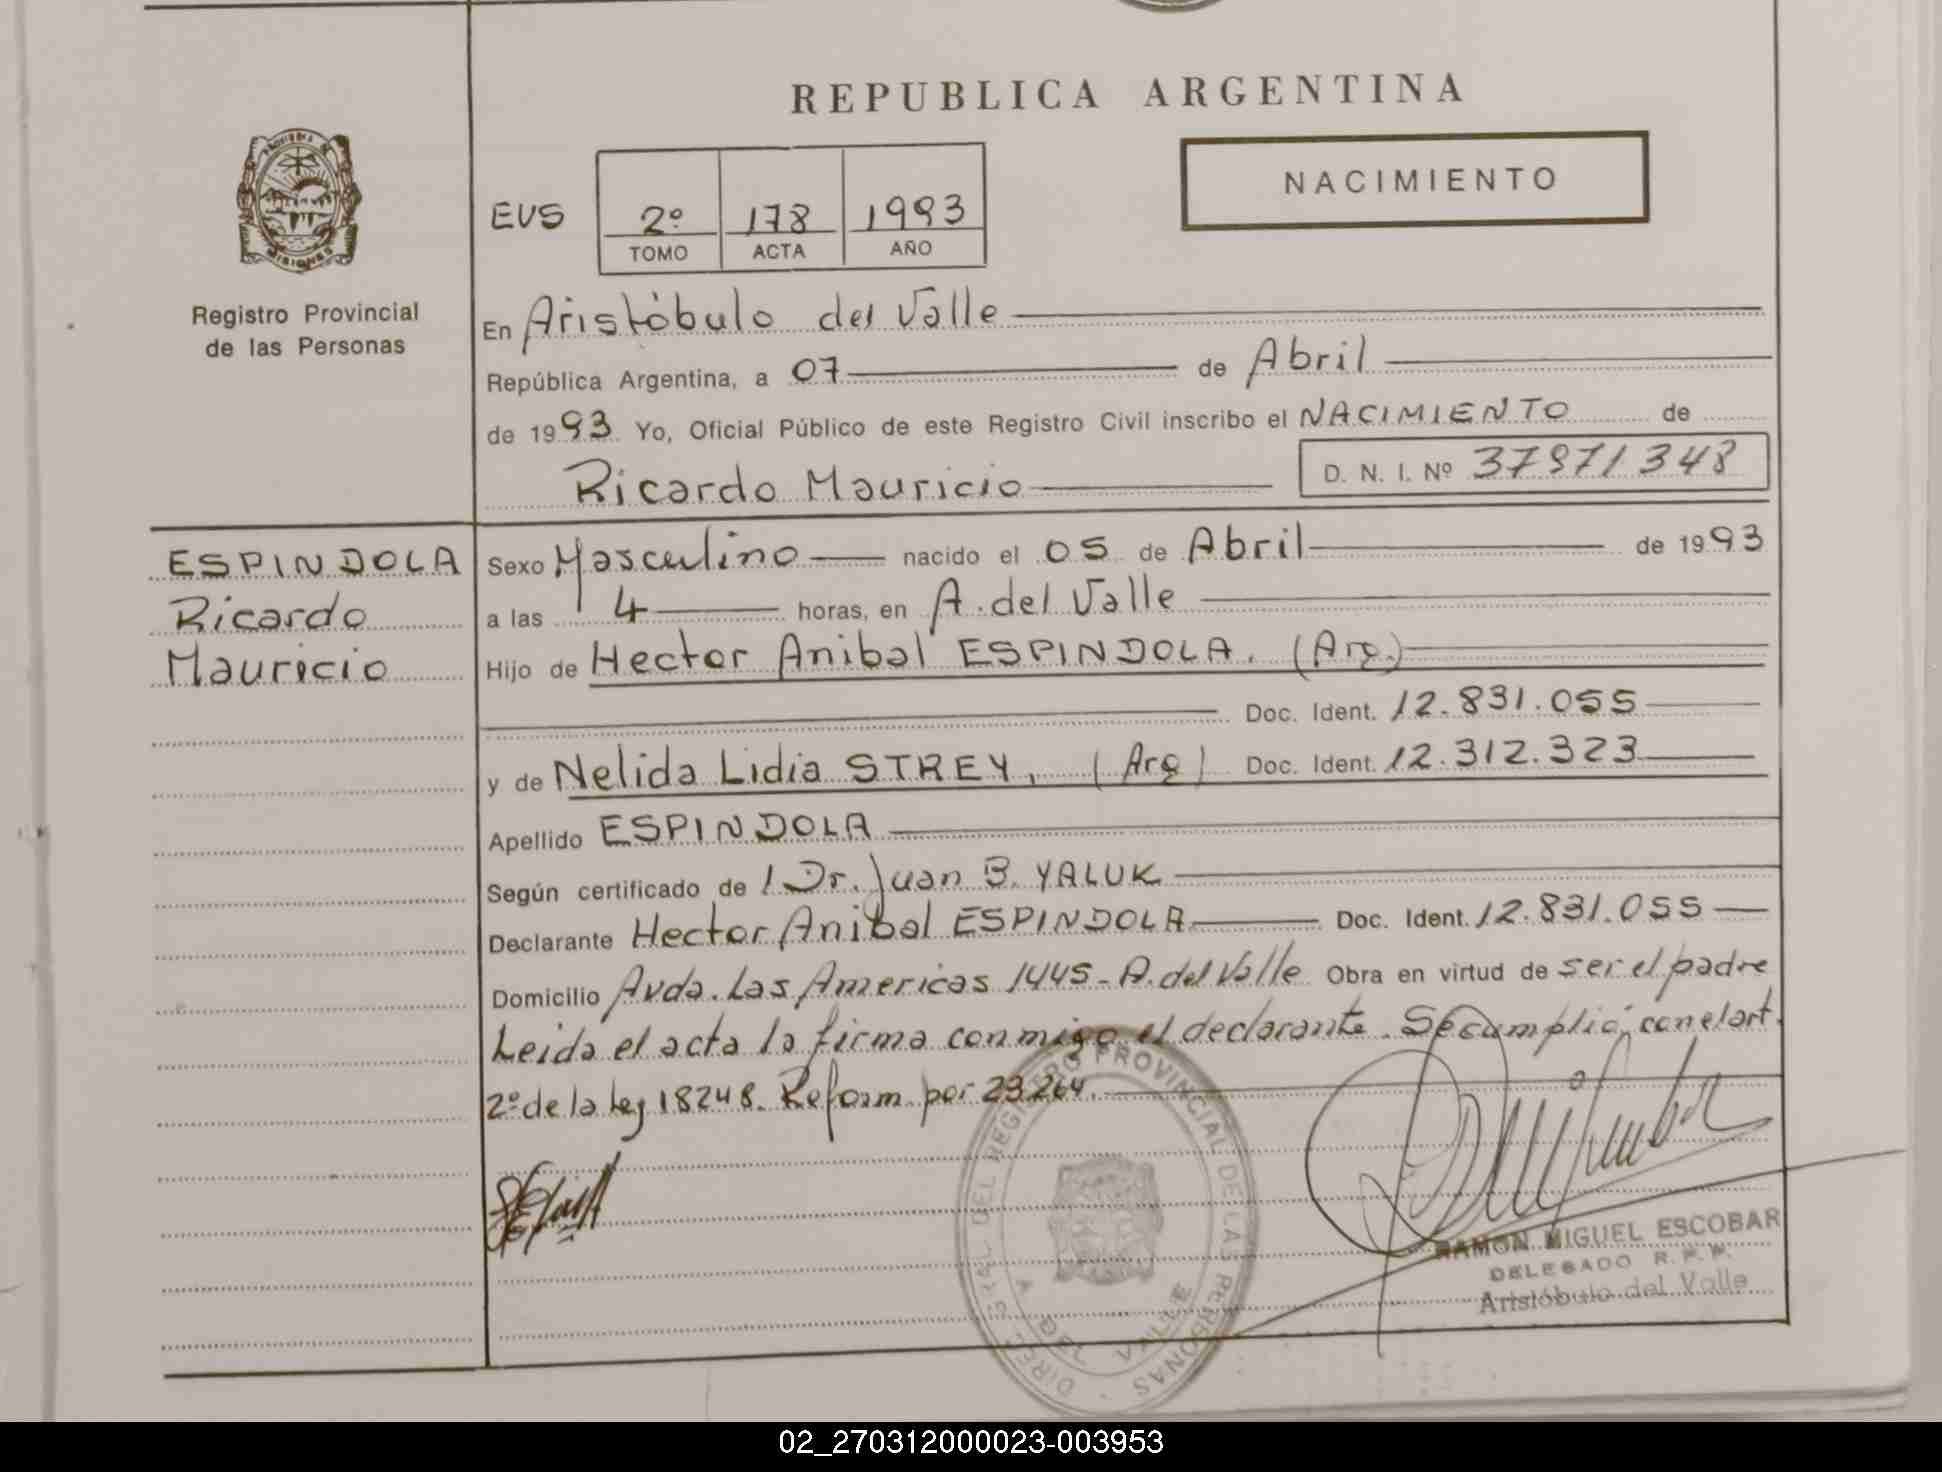 REPUBLICA ARGENTINA
NACIMIENTO
EVS
2º 178 1993
TOMO ACTA AÑO
PROVINCIA DE MISIONES
Registro Provincial
de las Personas
En Aristóbulo del Valle
República Argentina, a 07 de Abril
de 1993 Yo, Oficial Público de este Registro Civil inscribo el NACIMIENTO de
Ricardo Mauricio D. N. I. Nº 37971348
ESPINDOLA
Ricardo
Mauricio
Sexo Masculino nacido el 05 de Abril de 1993
a las 4 horas, en A. del Valle
Hijo de Hector Anibal ESPINDOLA. (Arg.)
Doc. Ident. 12.831.055
y de Nelida Lidia STREY, (Arg) Doc. Ident. 12.312.323
Apellido ESPINDOLA
Según certificado de l Dr. Juan B. YALUK
Declarante Hector Anibal ESPINDOLA Doc. Ident. 12.831.055
Domicilio Avda. Las Americas 1445- A. del Valle Obra en virtud de ser el padre
Leida el acta la firma conmigo el declarante. Se cumplió, con el art.
2º de la ley 18248. Reform. por 23.264.
DEL REGISTRO PROVINCIAL DE LAS PERSONAS
A DEL VALLE
RAMON MIGUEL ESCOBAR
DELEGADO R. P. P.
Aristóbulo del Valle
02_270312000023-003953